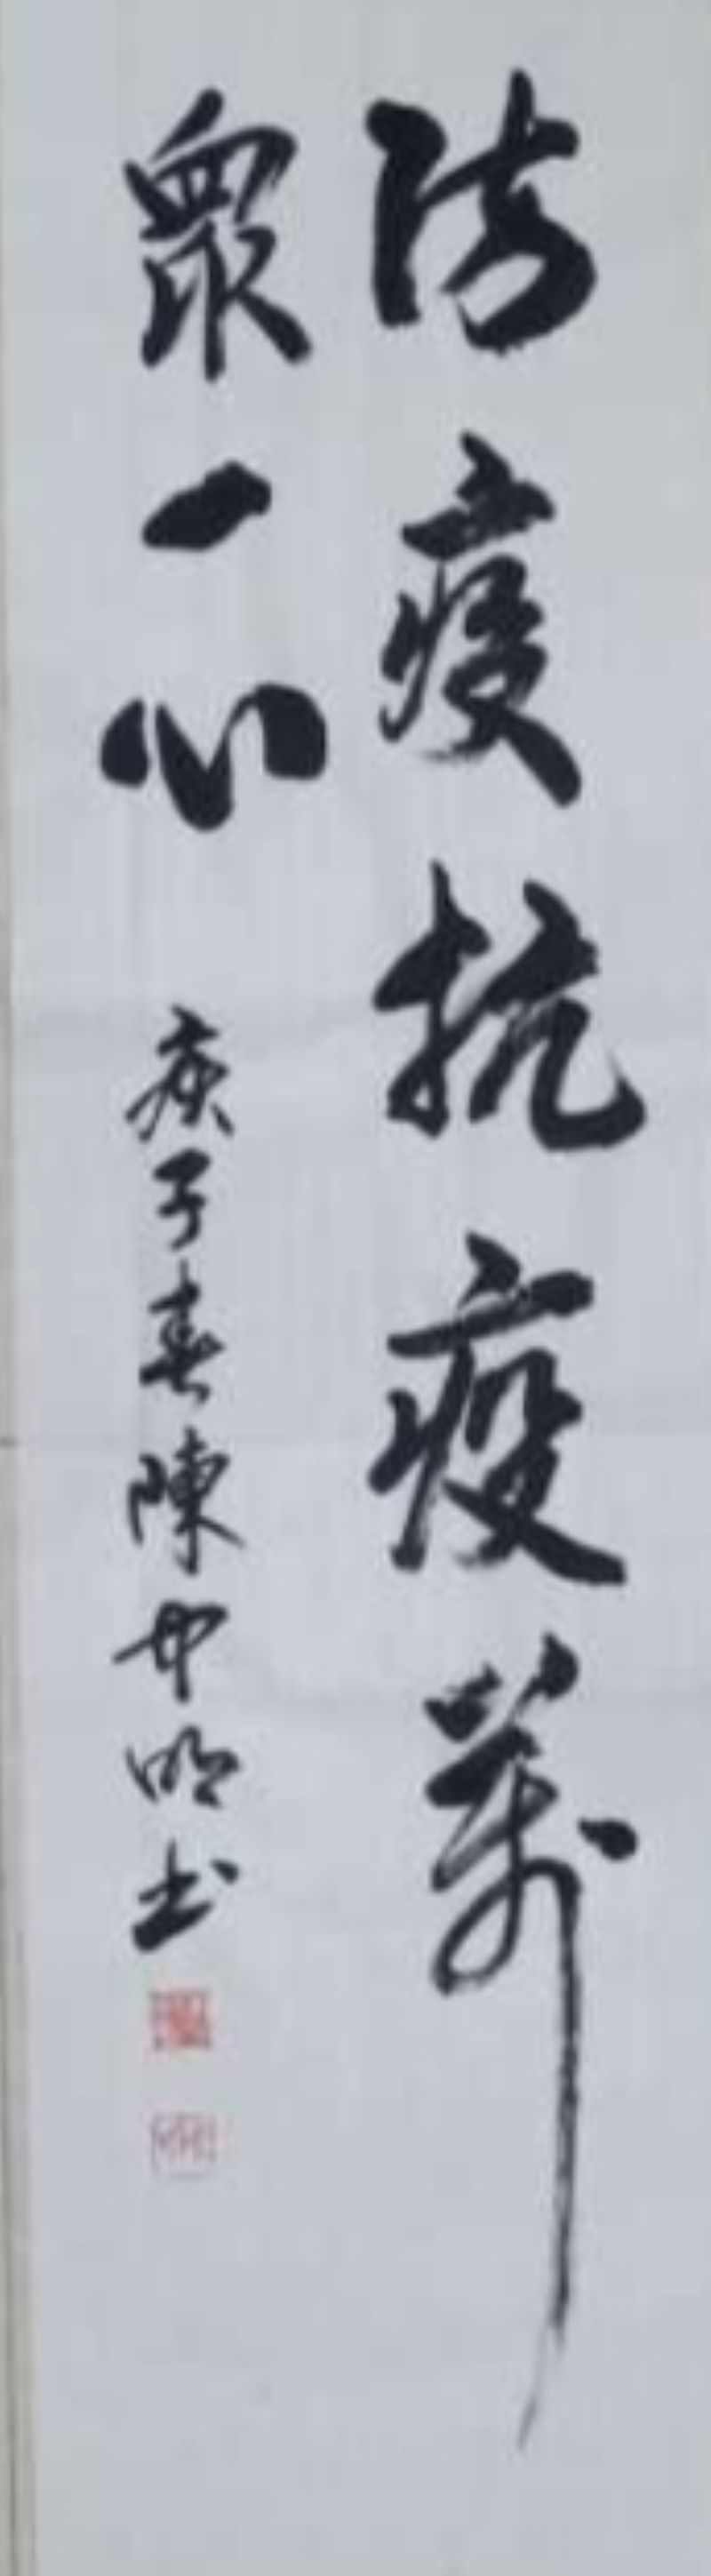 防疫抗疫萬
眾一心 庚子春陳中明书